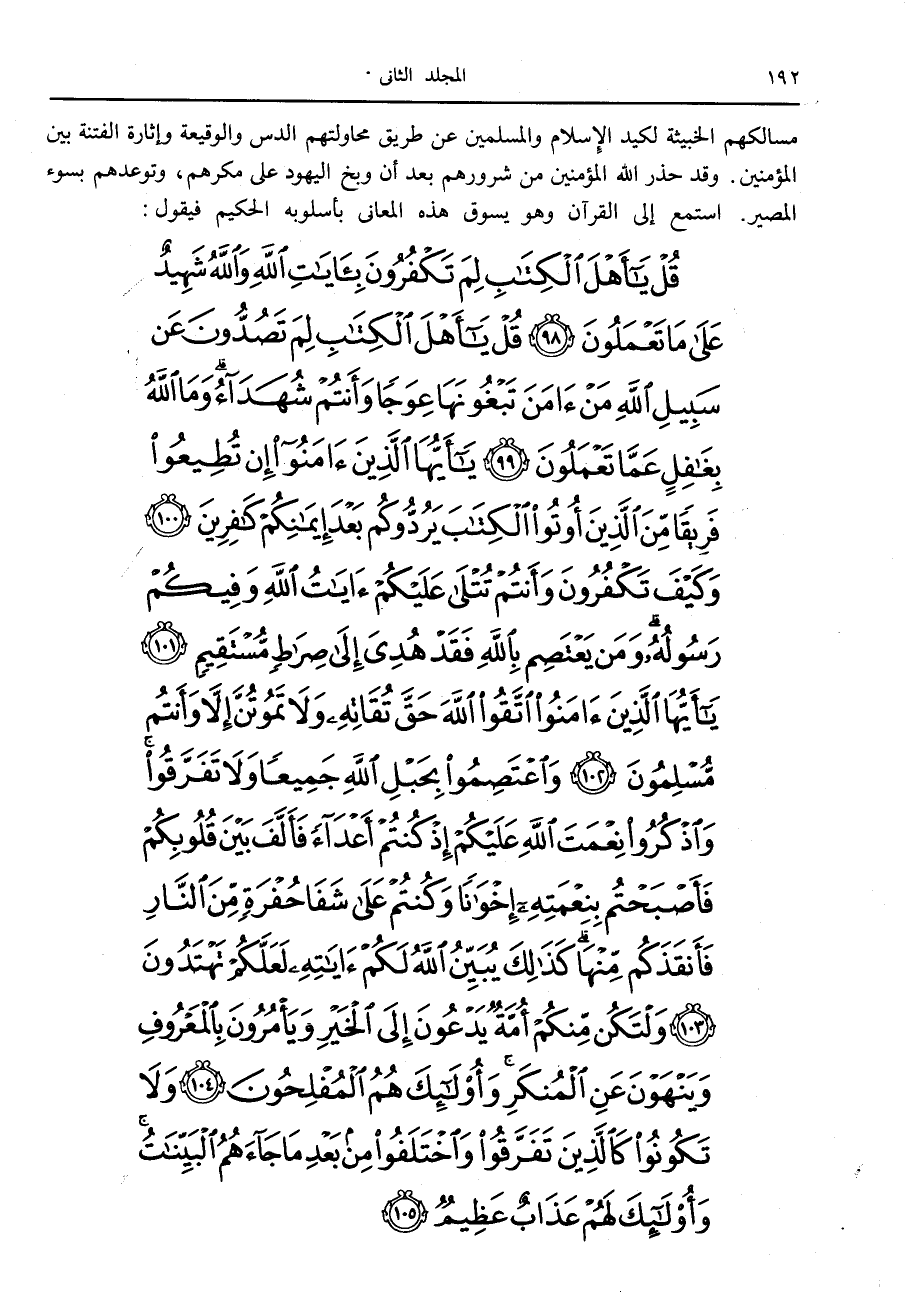 ١٩٢ المجلد الثانى
مسالكهم الخبيثة لكيد الإسلام والمسلمين عن طريق محاولتهم الدس والوقيعة وإثارة الفتنة بين
المؤمنين. وقد حذر الله المؤمنين من شرورهم بعد أن وبخ اليهود على مكرهم، وتوعدهم بسوء
المصير. استمع إلى القرآن وهو يسوق هذه المعانى بأسلوبه الحكيم فيقول:
قُلْ يَٰٓأَهْلَ ٱلْكِتَٰبِ لِمَ تَكْفُرُونَ بِـَٔايَٰتِ ٱللَّهِ وَٱللَّهُ شَهِيدٌ
عَلَىٰ مَا تَعْمَلُونَ ﴿٩٨﴾ قُلْ يَٰٓأَهْلَ ٱلْكِتَٰبِ لِمَ تَصُدُّونَ عَن
سَبِيلِ ٱللَّهِ مَنْ ءَامَنَ تَبْغُونَهَا عِوَجًا وَأَنتُمْ شُهَدَآءُ ۗ وَمَا ٱللَّهُ
بِغَٰفِلٍ عَمَّا تَعْمَلُونَ ﴿٩٩﴾ يَٰٓأَيُّهَا ٱلَّذِينَ ءَامَنُوٓا۟ إِن تُطِيعُوا۟
فَرِيقًا مِّنَ ٱلَّذِينَ أُوتُوا۟ ٱلْكِتَٰبَ يَرُدُّوكُم بَعْدَ إِيمَٰنِكُمْ كَٰفِرِينَ ﴿١٠٠﴾
وَكَيْفَ تَكْفُرُونَ وَأَنتُمْ تُتْلَىٰ عَلَيْكُمْ ءَايَٰتُ ٱللَّهِ وَفِيكُمْ
رَسُولُهُۥ ۗ وَمَن يَعْتَصِم بِٱللَّهِ فَقَدْ هُدِىَ إِلَىٰ صِرَٰطٍ مُّسْتَقِيمٍ ﴿١٠١﴾
يَٰٓأَيُّهَا ٱلَّذِينَ ءَامَنُوا۟ ٱتَّقُوا۟ ٱللَّهَ حَقَّ تُقَاتِهِۦ وَلَا تَمُوتُنَّ إِلَّا وَأَنتُم
مُّسْلِمُونَ ﴿١٠٢﴾ وَٱعْتَصِمُوا۟ بِحَبْلِ ٱللَّهِ جَمِيعًا وَلَا تَفَرَّقُوا۟ ۚ
وَٱذْكُرُوا۟ نِعْمَتَ ٱللَّهِ عَلَيْكُمْ إِذْ كُنتُمْ أَعْدَآءً فَأَلَّفَ بَيْنَ قُلُوبِكُمْ
فَأَصْبَحْتُم بِنِعْمَتِهِۦٓ إِخْوَٰنًا وَكُنتُمْ عَلَىٰ شَفَا حُفْرَةٍ مِّنَ ٱلنَّارِ
فَأَنقَذَكُم مِّنْهَا ۗ كَذَٰلِكَ يُبَيِّنُ ٱللَّهُ لَكُمْ ءَايَٰتِهِۦ لَعَلَّكُمْ تَهْتَدُونَ
﴿١٠٣﴾ وَلْتَكُن مِّنكُمْ أُمَّةٌ يَدْعُونَ إِلَى ٱلْخَيْرِ وَيَأْمُرُونَ بِٱلْمَعْرُوفِ
وَيَنْهَوْنَ عَنِ ٱلْمُنكَرِ ۚ وَأُو۟لَٰٓئِكَ هُمُ ٱلْمُفْلِحُونَ ﴿١٠٤﴾ وَلَا
تَكُونُوا۟ كَٱلَّذِينَ تَفَرَّقُوا۟ وَٱخْتَلَفُوا۟ مِنۢ بَعْدِ مَا جَآءَهُمُ ٱلْبَيِّنَٰتُ ۚ
وَأُو۟لَٰٓئِكَ لَهُمْ عَذَابٌ عَظِيمٌ ﴿١٠٥﴾